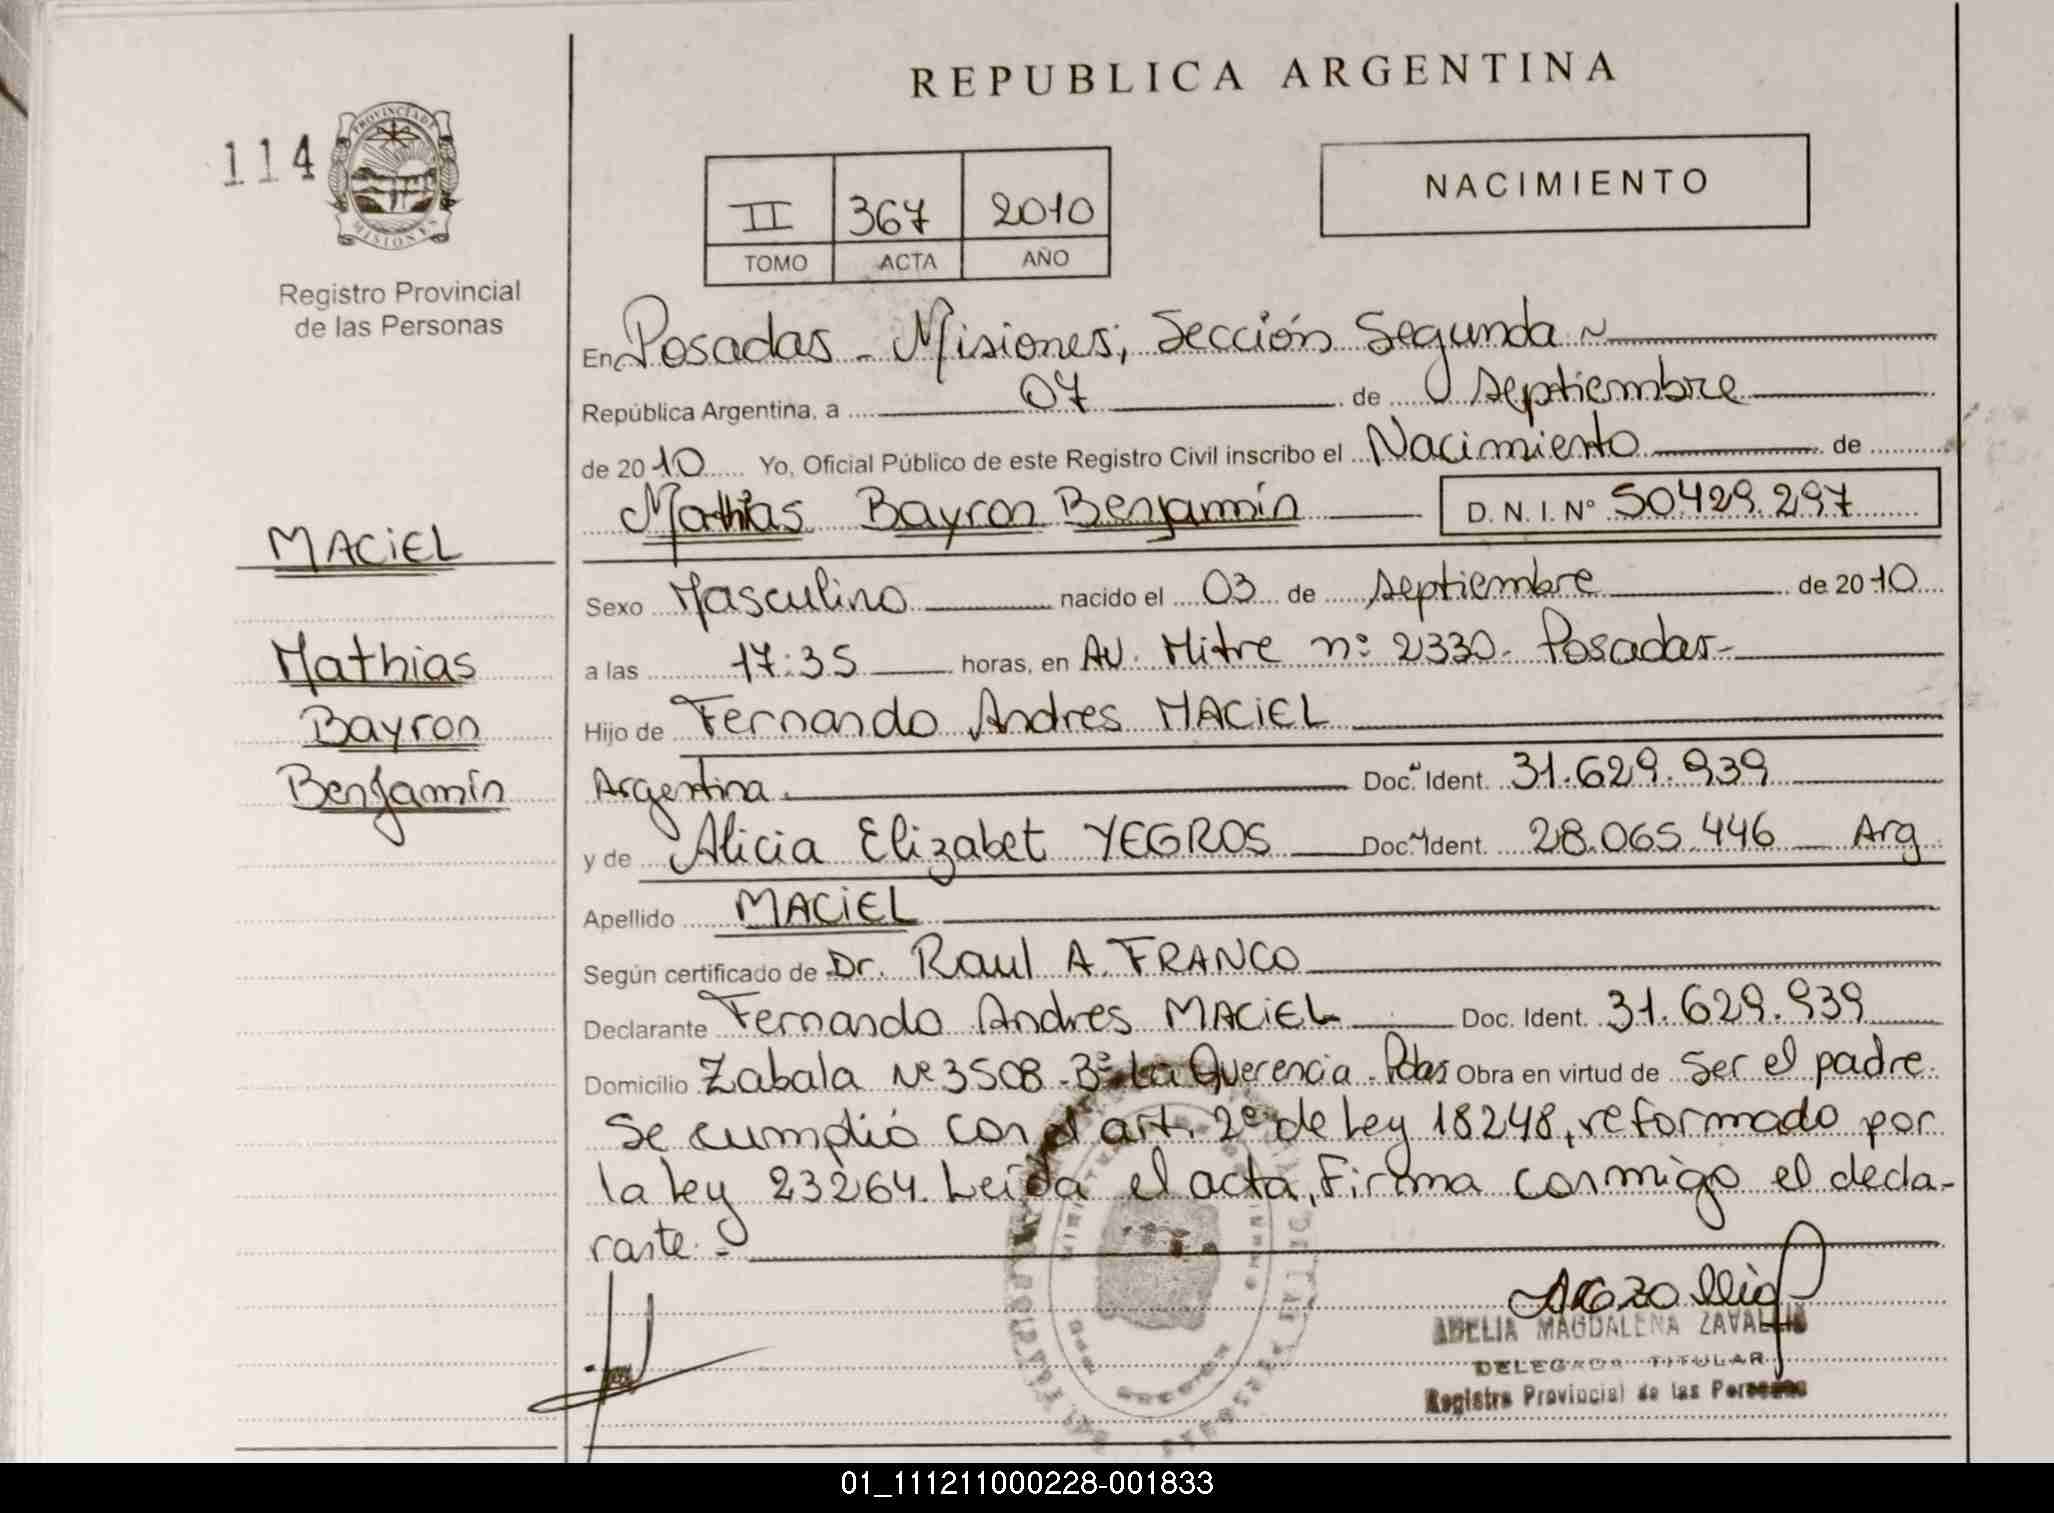 REPUBLICA ARGENTINA
114
PROVINCIA DE
MISIONES
Registro Provincial
de las Personas
II 367 2010
TOMO ACTA AÑO
NACIMIENTO
En Posadas - Misiones, Sección Segunda
República Argentina, a 07 de Septiembre
de 2010 Yo, Oficial Público de este Registro Civil inscribo el Nacimiento de
Mathias Bayron Benjamín D. N. I. Nº 50.429.297
MACIEL
Mathias
Bayron
Benjamín
Sexo Masculino nacido el 03 de Septiembre de 2010
a las 17:35 horas, en Av. Mitre nº 2330. Posadas-
Hijo de Fernando Andres MACIEL
Argentina. Doc. Ident. 31.629.939
y de Alicia Elizabet YEGROS Doc. Ident. 28.065.446 Arg
Apellido MACIEL
Según certificado de Dr. Raul A. FRANCO
Declarante Fernando Andres MACIEL Doc. Ident. 31.629.939
Domicilio Zabala Nº 3508. Bº La Querencia. Pdas Obra en virtud de Ser el padre.
Se cumplió con el art. 2º de Ley 18248, reformado por
la Ley 23264. Leída el acta, Firma conmigo el decla-
rante.-
AMELIA MAGDALENA
DELEGADA TITULAR
Registro Provincial de las Personas
01_111211000228-001833